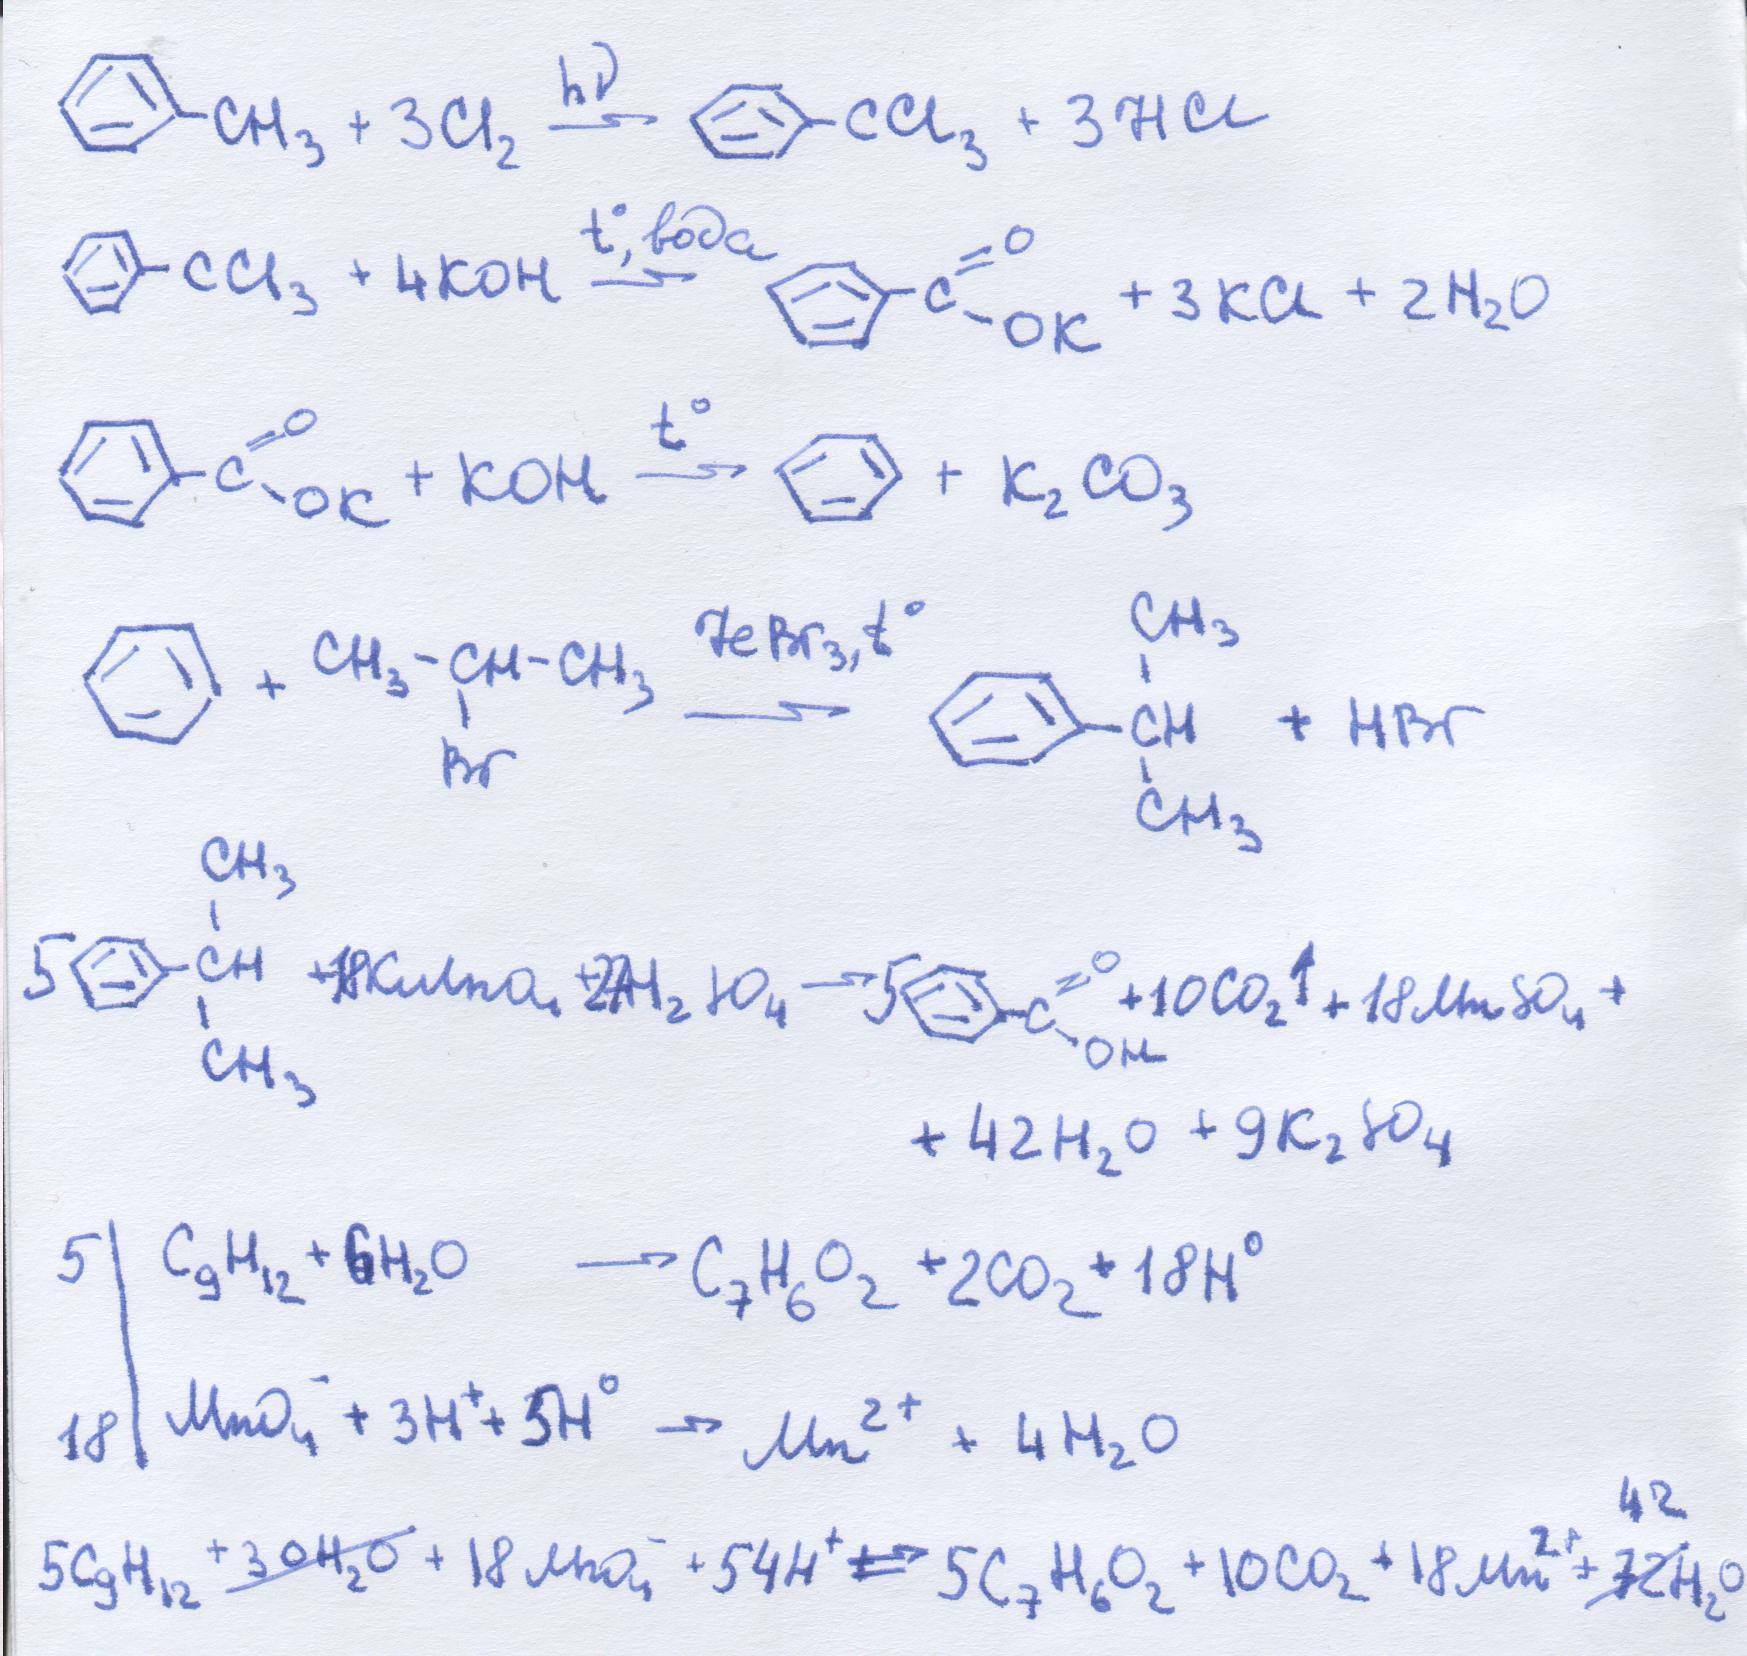 CH₃ + 3Cl₂ hν → CCl₃ + 3HCl
CCl₃ + 4KOH t°, вода → C =O -OK + 3KCl + 2H₂O
C =O -OK + KOH t° → + K₂CO₃
+ CH₃-CH-CH₃ Br FeBr₃, t° → CH₃ CH CH₃ + HBr
5 CH₃ CH CH₃ + 18KMnO₄ + 27H₂SO₄ → 5 C =O OH + 10CO₂↑ + 18MnSO₄ +
+ 42H₂O + 9K₂SO₄
5 | C₉H₁₂ + 6H₂O → C₇H₆O₂ + 2CO₂ + 18H⁰
18 | MnO₄⁻ + 3H⁺ + 5H⁰ → Mn²⁺ + 4H₂O
42
5C₉H₁₂ + 30H₂O + 18MnO₄⁻ + 54H⁺ → 5C₇H₆O₂ + 10CO₂ + 18Mn²⁺ + 72H₂O